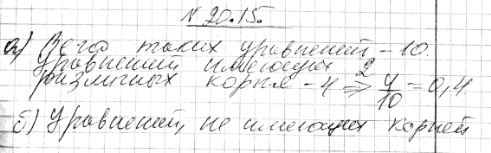 № 20.15.
а) Всего таких уравнений - 10.
Уравнений имеющих 2
различных корня - 4 ⇒ 4/10 = 0,4
б) Уравнений, не имеющих корней